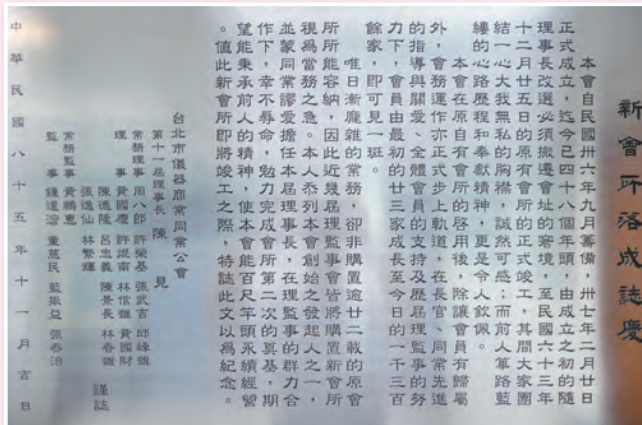 新會所落成誌慶
本會自民國卅六年九月籌備 卅七年二月廿日
正式成立，迄今已四十八個年頭，由成立之初的隨
理事長改選必須搬遷會址的窘境，至民國六十三年
十二月廿五日的原有會所的正式竣工，其間大家團
結一心大我無私的胸襟，誠然可感；而前人篳路藍
縷的心路歷程和奉獻精神，更是令人欽佩。
本會在原自有會所的啓用後，除讓會員有歸屬
外，會務運作亦正式步上軌道，在長官、同業先進
的指導與關愛、全體會員的支持及歷屆理監事的努
力下，會員由最初的廿三家成長至今日的一千三百
餘家，即可見一斑。
唯日漸龐雜的業務，卻非購置逾廿二載的原會
所所能容納，因此近幾屆理監事會皆將購置新會所
視為當務之急。本人忝列本會創始之發起人之一，
並蒙同業謬愛擔任本屆理事長，在理監事的群力合
作下，幸不辱命，勉力完成會所第二次的奠基，期
望能秉承前人的精神，使本會能百尺竿頭永續經營
。值此新會所即將竣工之際，特誌此文以為紀念。
台北市儀器商業同業公會
第十一屆理事長 陳 見
常務理事 周八郎 許榮基 張武吉 邱峰雄
理 事 黃國慶 許焜南 林信雄 黃國財
陳德隆 呂忠義 陳景長 林春雄
張逸仙 林繁輝
常務監事 黃鵬惠
監 事 錢達源 童慈民 藍振益 張春治
謹誌
中華民國八十五年十一月吉日